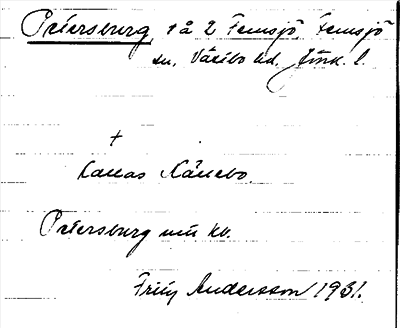 Petersburg t å 2 Femsjö, Femsjö
sn, Västbo hd. Jönk. l.
+
kallas Källebo.
Petersburg nu kb.
Fritz Andersson 1931.